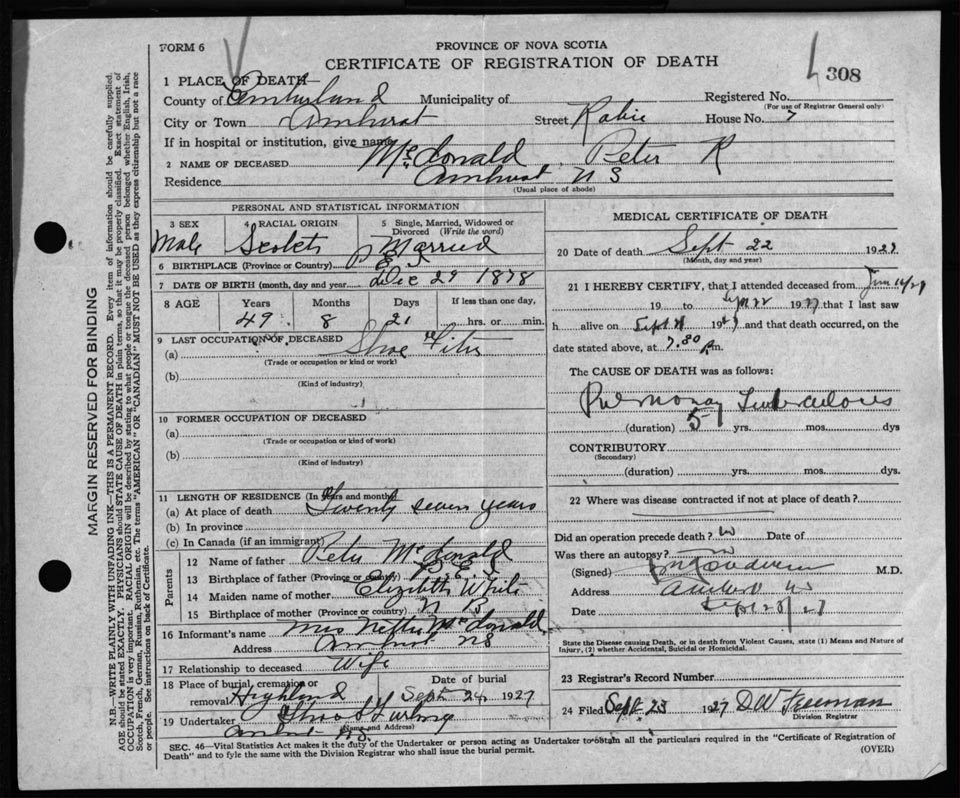 FORM 6
PROVINCE OF NOVA SCOTIA
CERTIFICATE OF REGISTRATION OF DEATH
308
1 PLACE OF DEATH
County of Cumberland Municipality of Registered No.
(For use of Registrar General only)
City or Town Amherst Street Robie House No. 7
If in hospital or institution, give name
2 NAME OF DECEASED McDonald Peter R
Residence Amherst N S
(Usual place of abode)
PERSONAL AND STATISTICAL INFORMATION
3 SEX 4 RACIAL ORIGIN 5 Single, Married, Widowed or Divorced (Write the word)
Male Scotch Married
6 BIRTHPLACE (Province or Country) P E I
7 DATE OF BIRTH (month, day and year) Dec 29 1878
8 AGE Years Months Days If less than one day,
49 8 21 hrs. or min.
9 LAST OCCUPATION OF DECEASED
(a) Shoe
(Trade or occupation or kind or work)
(b)
(Kind of industry)
10 FORMER OCCUPATION OF DECEASED
(a)
(Trade or occupation or kind or work)
(b)
(Kind of industry)
11 LENGTH OF RESIDENCE (In years and months)
(a) At place of death Twenty seven years
(b) In province
(c) In Canada (if an immigrant)
Parents
12 Name of father Peter McDonald
13 Birthplace of father (Province or country) P E I
14 Maiden name of mother Elizabeth White
15 Birthplace of mother (Province or country) N B
16 Informant's name Mrs McDonald
Address Amherst NS
17 Relationship to deceased Wife
18 Place of burial, cremation or removal Highland Date of burial Sept 24 1927
19 Undertaker Furlong
(Name and Address)
Amherst N.S.
MEDICAL CERTIFICATE OF DEATH
20 Date of death Sept 22 1927
(Month, day and year)
21 I HEREBY CERTIFY, that I attended deceased from June 16/27
19 to Sept 22 1927 that I last saw
h alive on Sept 1927 and that death occurred, on the
date stated above, at 7.30 P.m.
The CAUSE OF DEATH was as follows:
Pulmonary Tuberculosis
(duration) 5 yrs. mos. dys
CONTRIBUTORY
(Secondary)
(duration) yrs. mos. dys.
22 Where was disease contracted if not at place of death?
Did an operation precede death? no Date of
Was there an autopsy? no
(Signed) M.D.
Address Amherst NS
Date Sept 23/27
State the Disease causing Death, or in death from Violent Causes, state (1) Means and Nature of
Injury, (2) whether Accidental, Suicidal or Homicidal.
23 Registrar's Record Number
24 Filed Sept 23 1927 D W Freeman
Division Registrar
SEC. 46—Vital Statistics Act makes it the duty of the Undertaker or person acting as Undertaker to obtain all the particulars required in the "Certificate of Registration of
Death" and to fyle the same with the Division Registrar who shall issue the burial permit.
(OVER)
MARGIN RESERVED FOR BINDING
N.B.—WRITE PLAINLY WITH UNFADING INK—THIS IS A PERMANENT RECORD. Every item of information should be carefully supplied.
AGE should be stated EXACTLY. PHYSICIANS should STATE CAUSE OF DEATH in plain terms, so that it may be properly classified. Exact statement of
OCCUPATION is very important. RACIAL ORIGIN will be described by stating to what people or tongue the deceased person belonged whether English, Irish,
Scotch, French, German, Russian, Ruthenian, etc. The terms "AMERICAN" OR "CANADIAN" MUST NOT BE USED as they express citizenship but not a race
or people. See instructions on back of Certificate.